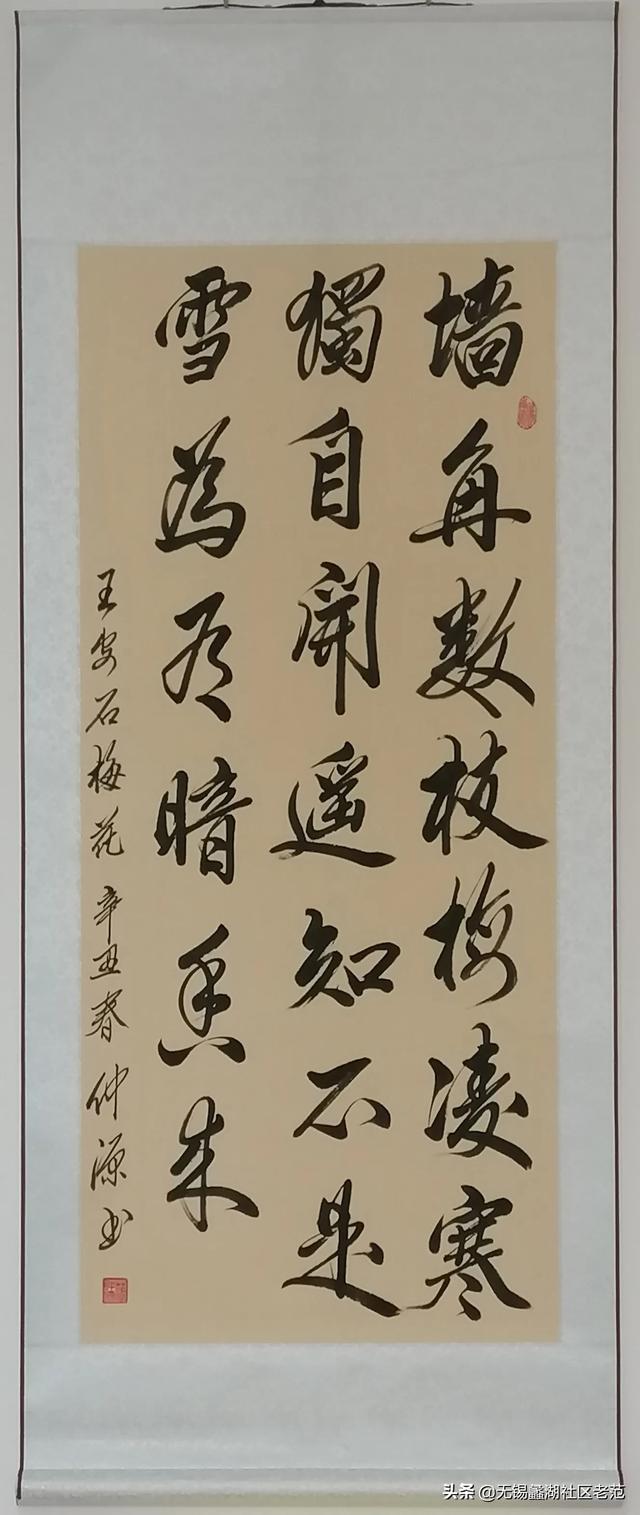 墙角数枝梅凌寒
獨自開遥知不是
雪為有暗香来
王安石梅花 辛丑春 仲源书
头条 @无锡蠡湖社区老范